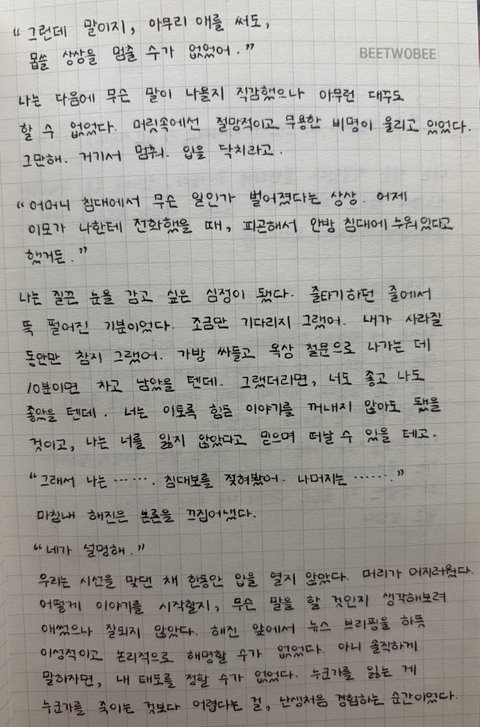 “그런데 말이지, 아무리 애를 써도,
몹쓸 상상을 멈출 수가 없었어.”
BEETWOBEE
나는 다음에 무슨 말이 나올지 직감했으나 아무런 대꾸도
할 수 없었다. 머릿속에선 절망적이고 무용한 비명이 울리고 있었다.
그만해. 거기서 멈춰. 입을 닥치라고.
“어머니 침대에서 무슨 일인가 벌어졌다는 상상. 어제
이모가 나한테 전화했을 때, 피곤해서 안방 침대에 누워있다고
했거든.”
나는 질끈 눈을 감고 싶은 심정이 됐다. 줄타기하던 줄에서
뚝 떨어진 기분이었다. 조금만 기다리지 그랬어. 내가 사라질
동안만 참지 그랬어. 가방 싸들고 옥상 철문으로 나가는 데
10분이면 차고 남았을 텐데. 그랬더라면, 너도 좋고 나도
좋았을 텐데. 너는 이토록 힘든 이야기를 꺼내지 않아도 됐을
것이고, 나는 너를 잃지 않았다고 믿으며 떠날 수 있을 테고.
“그래서 나는 ……. 침대보를 젖혀봤어. 나머지는 …….”
마침내 해진은 본론을 끄집어냈다.
“네가 설명해.”
우리는 시선을 맞댄 채 한동안 입을 열지 않았다. 머리가 어지러웠다.
어떻게 이야기를 시작할지, 무슨 말을 할 것인지 생각해보려
애썼으나 잘되지 않았다. 해진 앞에서 뉴스 브리핑을 하듯
이성적이고 논리적으로 해명할 수가 없었다. 아니 솔직하게
말하자면, 내 태도를 정할 수가 없었다. 누군가를 잃는 게
누군가를 죽이는 것보다 어렵다는 걸, 난생처음 경험하는 순간이었다.